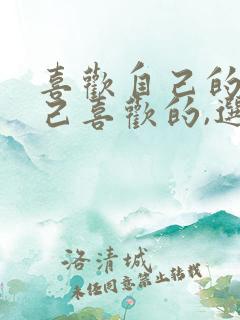 喜歡自己的
己喜歡的,選
洛清城
未经同意禁止转载